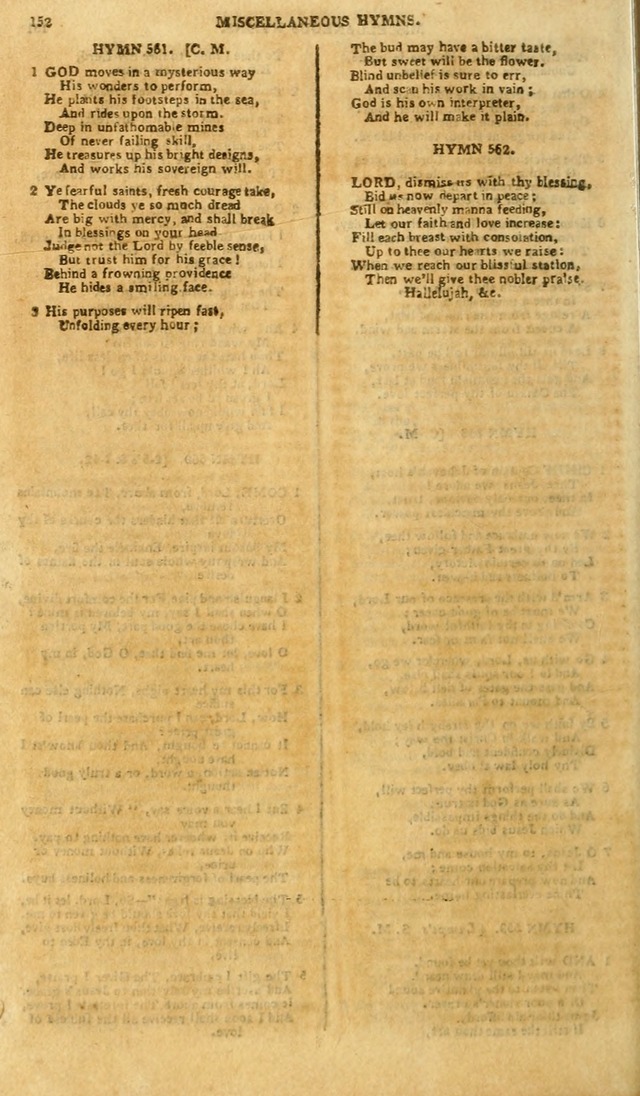 152
MISCELLANEOUS HYMNS.
HYMN 561. [C. M.
1 GOD moves in a mysterious way
His wonders to perform,
He plants his footsteps in the sea,
And rides upon the storm.
Deep in unfathomable mines
Of never failing skill,
He treasures up his bright designs,
And works his sovereign will.
2 Ye fearful saints, fresh courage take,
The clouds ye so much dread
Are big with mercy, and shall break
In blessings on your head.
Judge not the Lord by feeble sense,
But trust him for his grace!
Behind a frowning providence
He hides a smiling face.
3 His purposes will ripen fast,
Unfolding every hour;
The bud may have a bitter taste,
But sweet will be the flower.
Blind unbelief is sure to err,
And scan his work in vain;
God is his own interpreter,
And he will make it plain.
HYMN 562.
LORD, dismiss us with thy blessing,
Bid us now depart in peace;
Still on heavenly manna feeding,
Let our faith and love increase:
Fill each breast with consolation,
Up to thee our hearts we raise:
When we reach our blissful station,
Then we'll give thee nobler praise.
Hallelujah, &c.